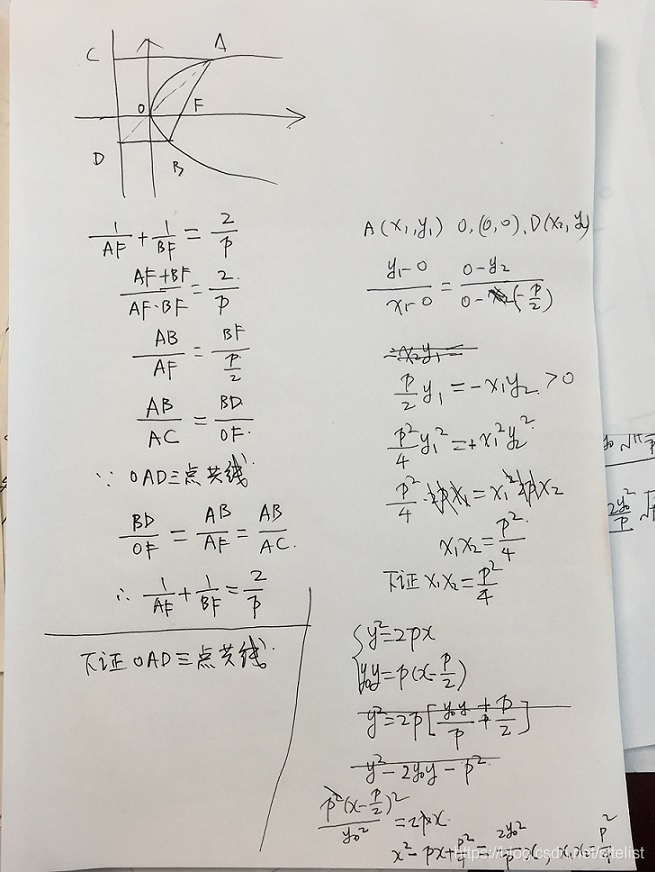 C A
O F
D B
1/AF + 1/BF = 2/P
AF+BF/AF·BF = 2/P
AB/AF = BF/(P/2)
AB/AC = BD/OF.
∵ OAD三点共线.
BD/OF = AB/AF = AB/AC.
∴ 1/AF + 1/BF = 2/P
下证 OAD三点共线.
A(x₁,y₁) O,(0,0), D(x₂,y₂)
y₁-0/x₁-0 = 0-y₂/0-(-P/2)
P/2 y₁ = -x₁y₂ > 0
P²/4 y₁² = +x₁²y₂²
P²/4 · 2px₁ = x₁² 2px₂
x₁x₂ = P²/4
下证 x₁x₂ = P²/4
{y²=2px
y₀y = p(x-P/2)
y²=2p[y₀y/P + P/2]
y²-2y₀y-p²
p²(x-P/2)²/y₀² = 2px.
x²-px+P²/4 = 2y₀²/P x, x₁x₂=P²/4
https://blog.csdn.net/sitelist